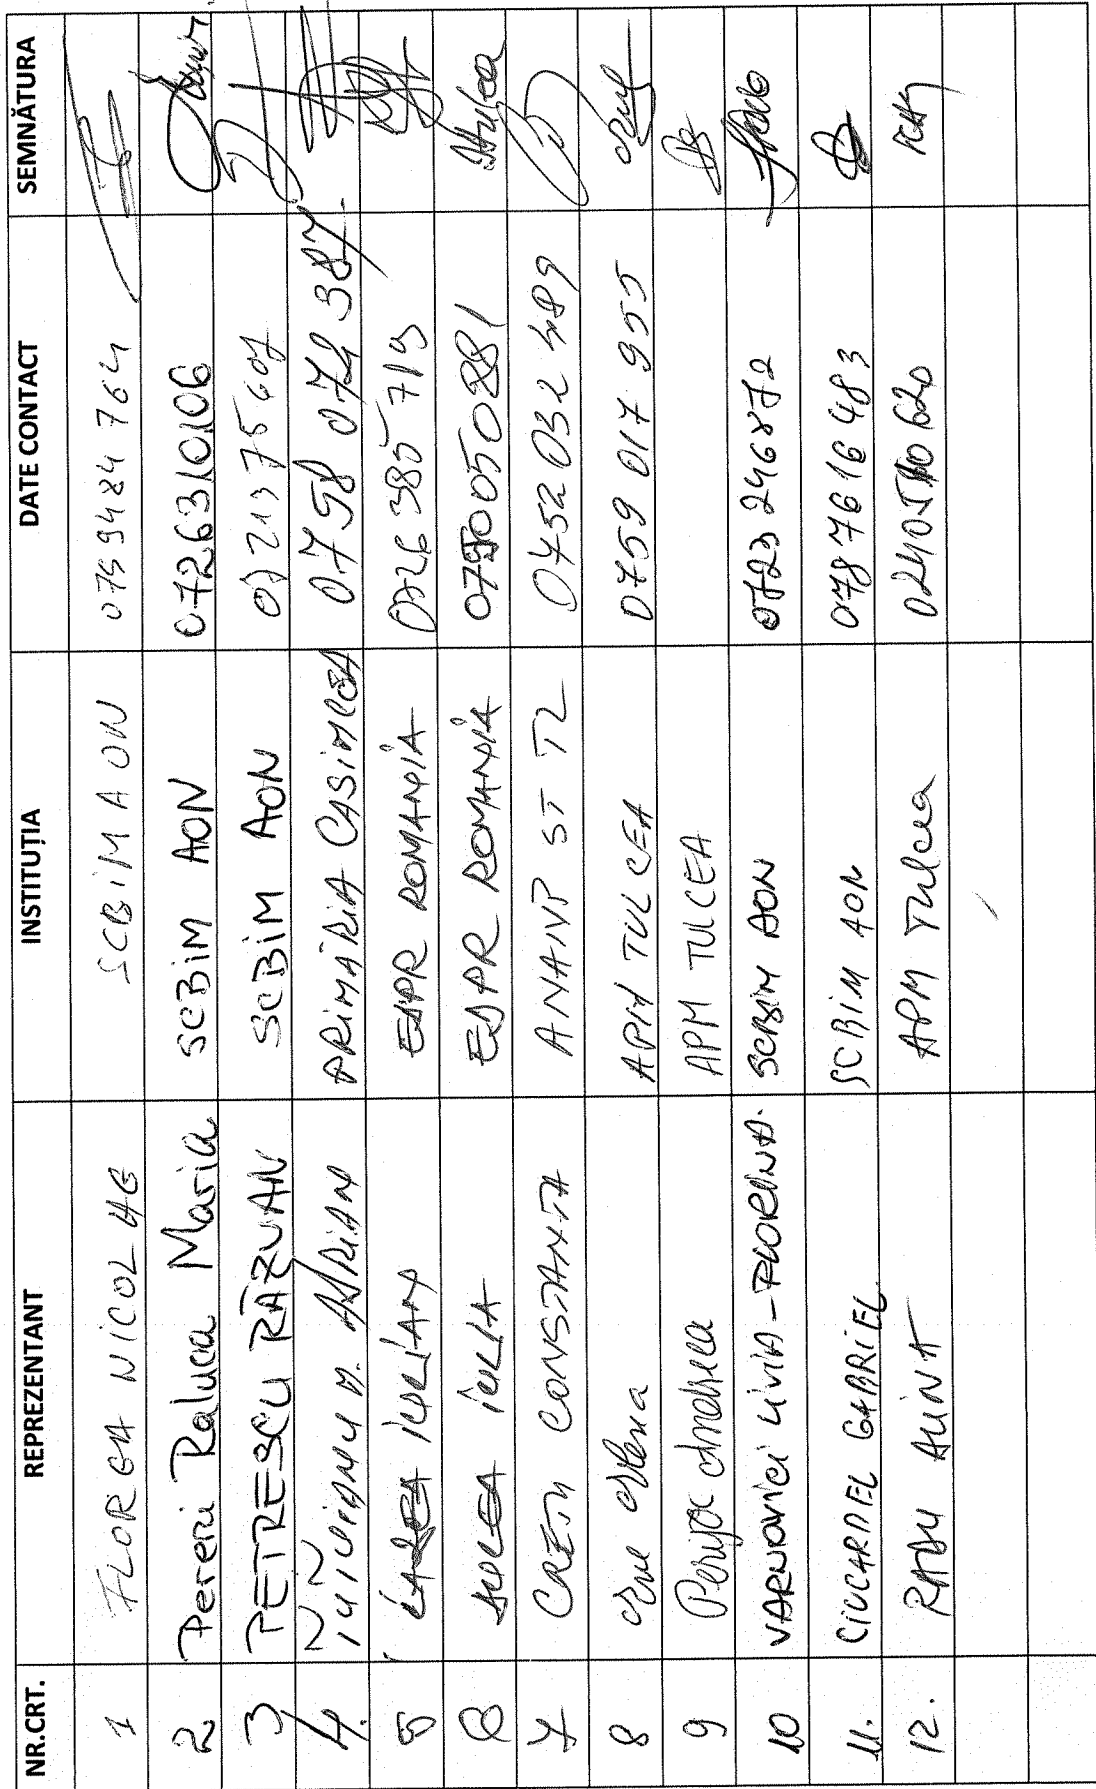 NR.CRT. REPREZENTANT INSTITUȚIA DATE CONTACT SEMNĂTURA
1 FLOREA NICOLAE SCBIM AON 0759484764
2. Pereni Raluca Maria SCBIM AON 0726310106
3 PETRESCU RĂZVAN SCBIM AON
4. ADRIAN PRIMĂRIA CASIMCEA 0758 072 387
5 IULIAN EDPR ROMANIA 0726 385 719
6 IULIA EDPR ROMANIA 0750050881
7 CREȚU CONSTANȚA ANANP ST TL 0752 032 489
8 Elena APM TULCEA 0759 017 955
9 Andreea APM TULCEA
10 VARNOVICI LIVIA-FLORINA. SCBIM AON 0723 246872
11. CIUCARDEL GABRIEL SCBIM AON 0787616483
12. RADU ALINA APM Tulcea 0240510620